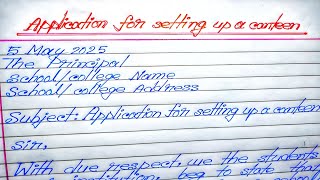 Application for setting up a canteen
5 May 2025
The Principal
School/college Name
School/college Address
Subject: Application for setting up a canteen
Sir,
With due respect, we the students
institution, beg to state that